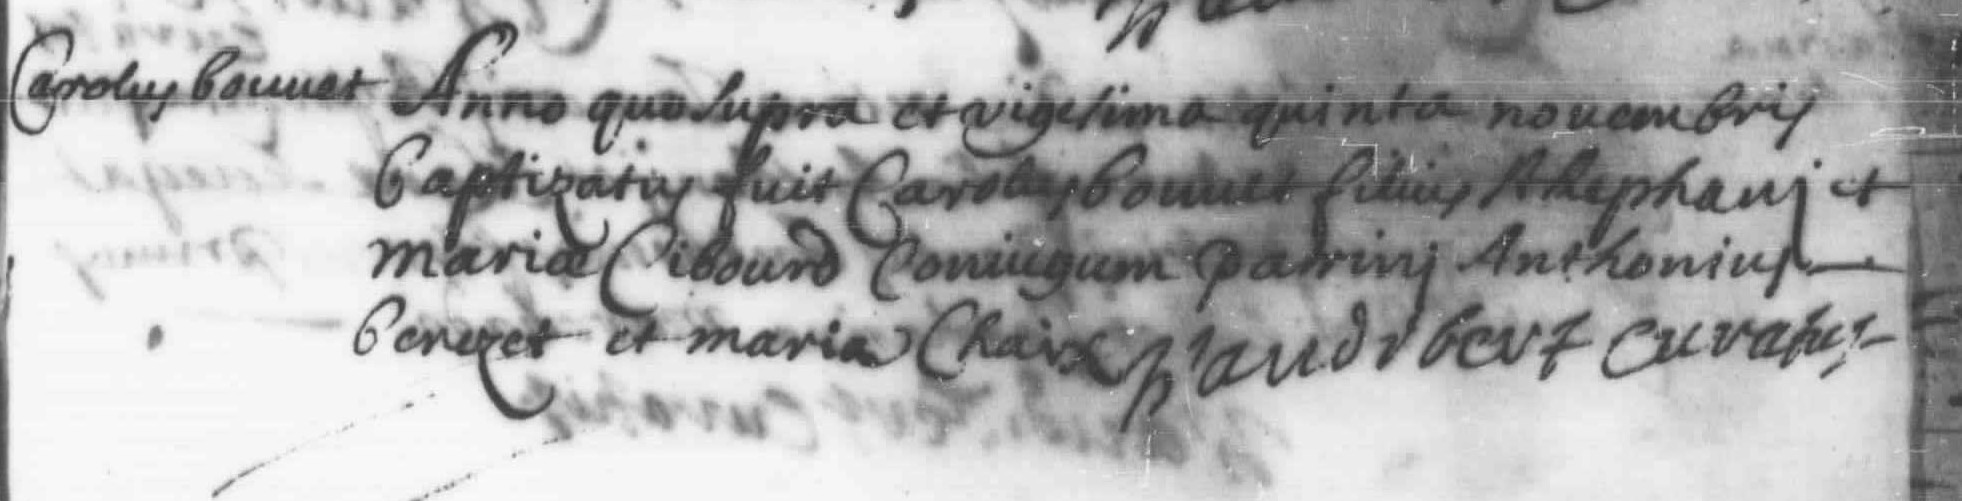 Carolus bouuet
Anno quo supra et vigesima quinta nouembris
baptizatus fuit Carolus bouuet filius Stephani et
mariæ Cibourd Coniugum patrini Anthonius
et maria Chaix P Jaudibert curatus